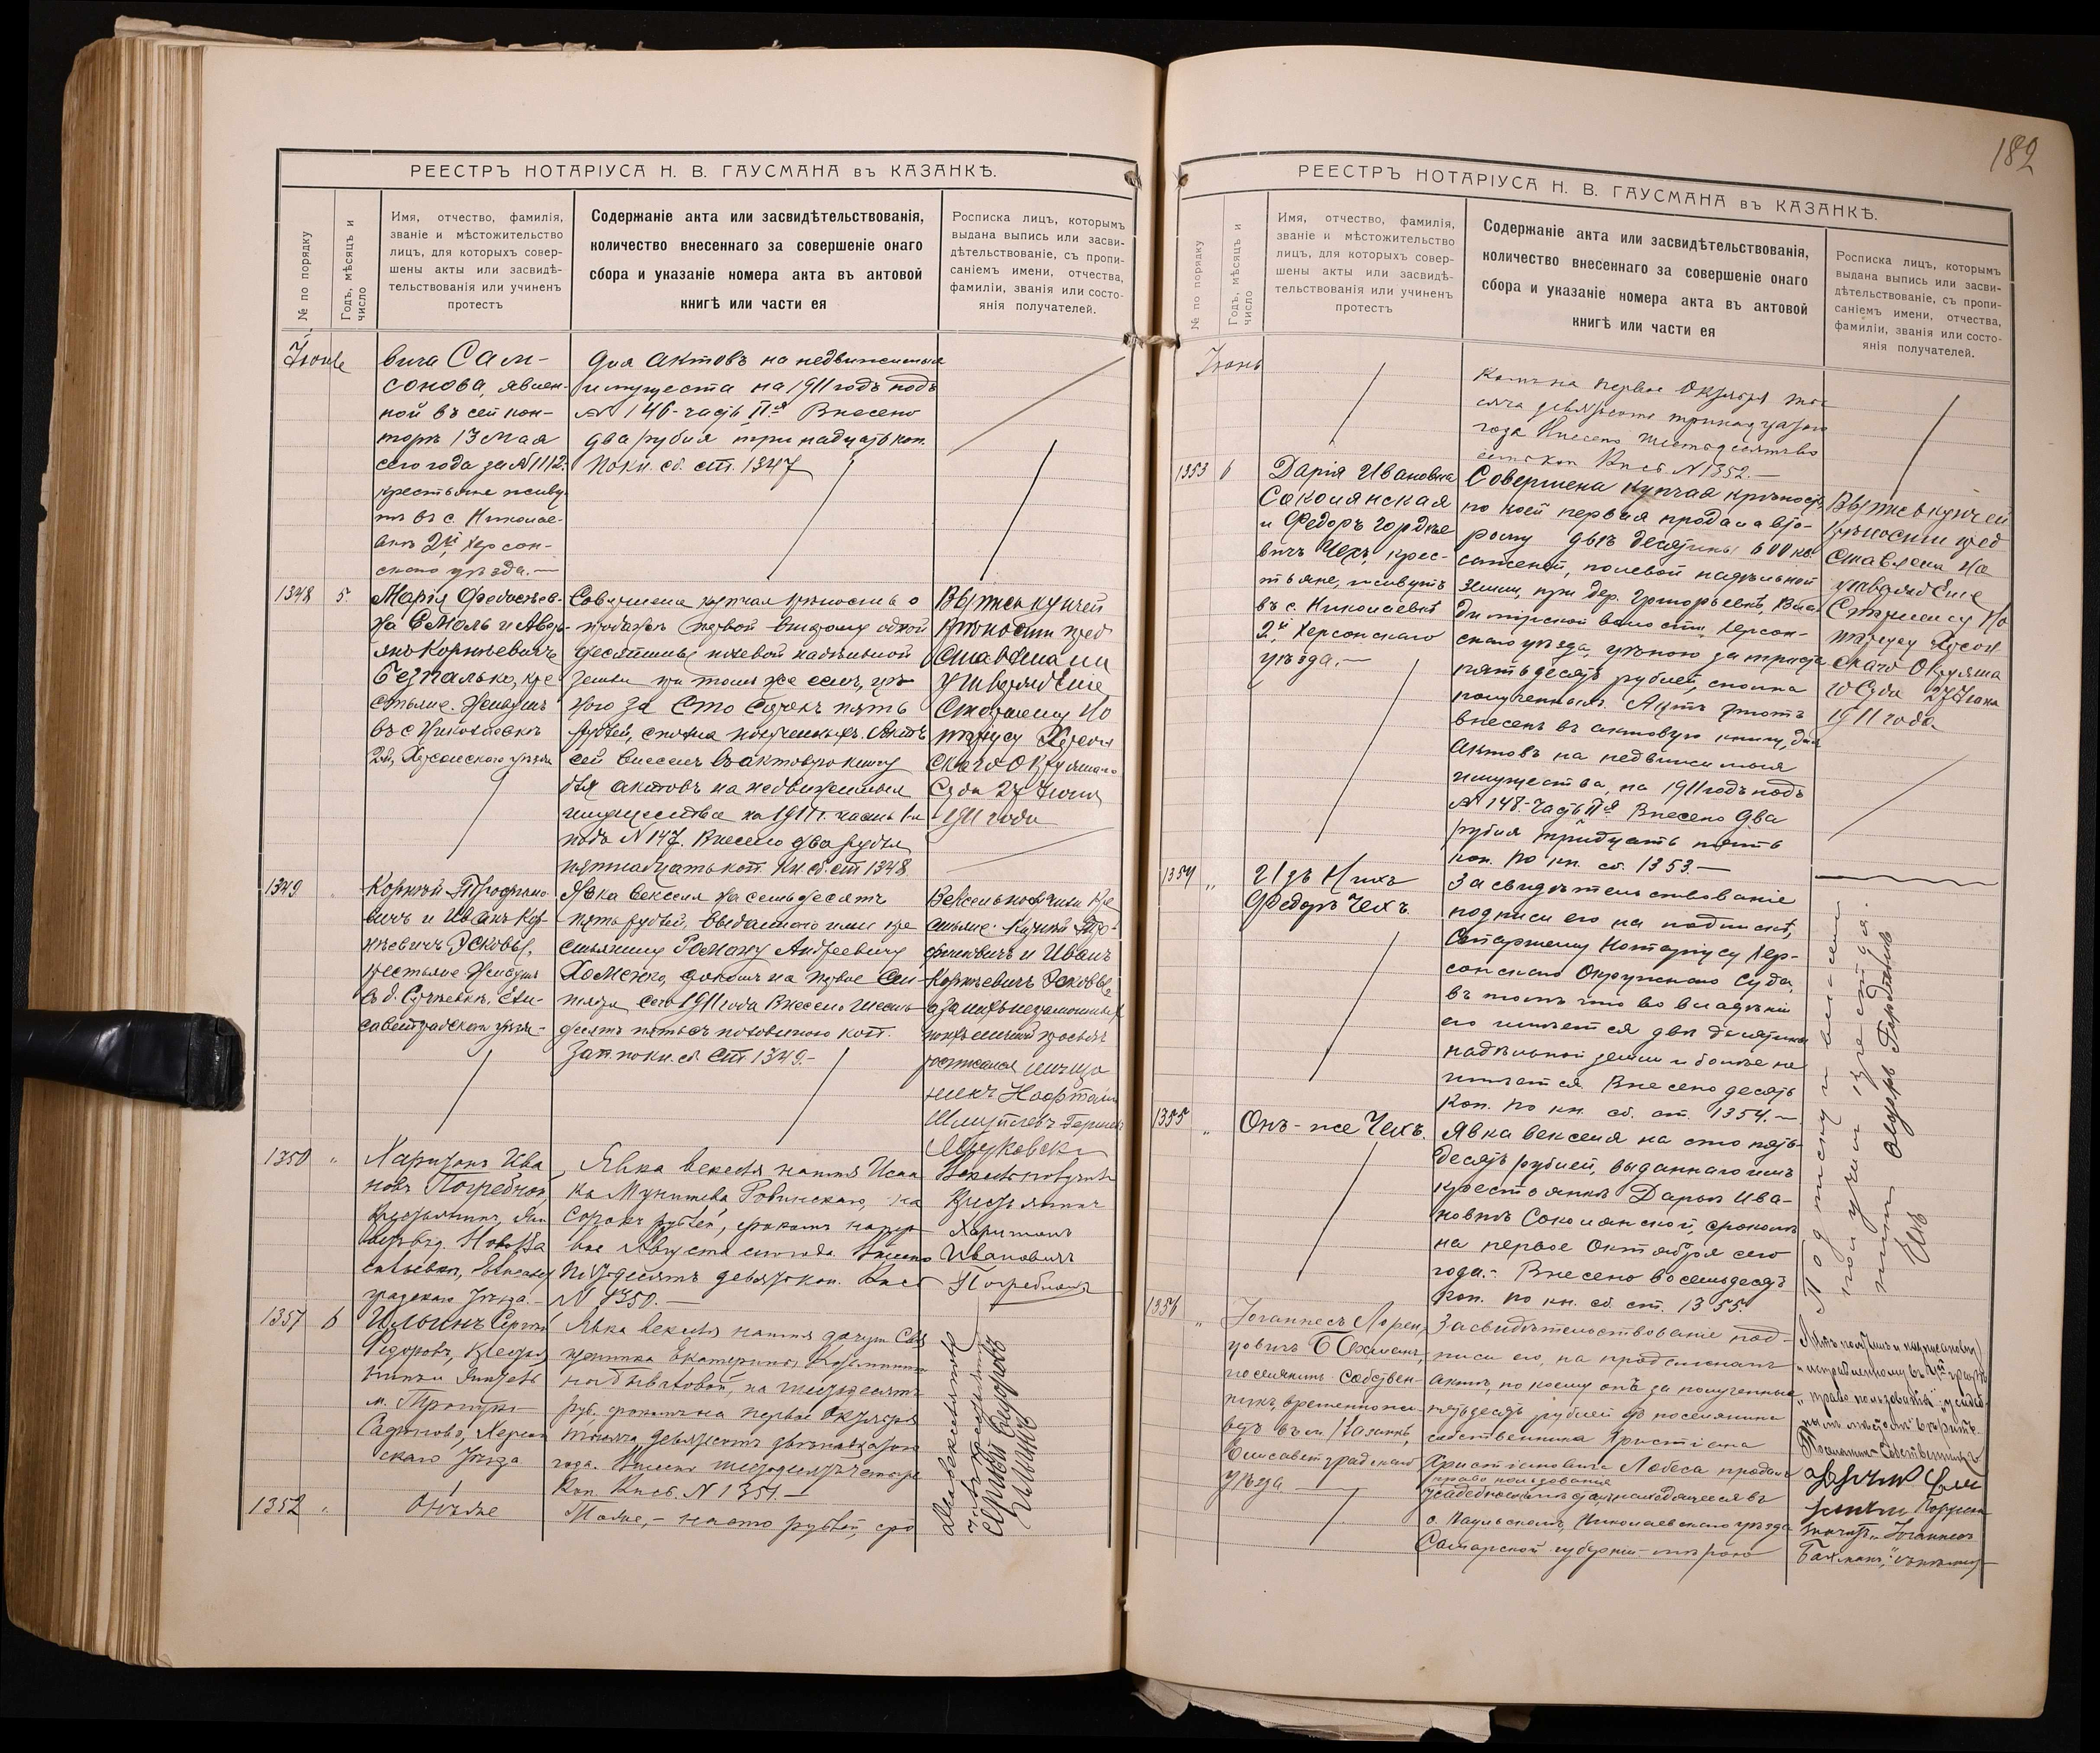 РЕЕСТРЪ НОТАРІУСА Н. В. ГАУСМАНА въ КАЗАНКѢ.
№ по порядку
Годъ, мѣсяцъ и
число
Имя, отчество, фамилія,
званіе и мѣстожительство
лицъ, для которыхъ совер-
шены акты или засвидѣ-
тельствованія или учиненъ
протестъ
Содержаніе акта или засвидѣтельствованія,
количество внесеннаго за совершеніе онаго
сбора и указаніе номера акта въ актовой
книгѣ или части ея
Росписка лицъ, которымъ
выдана выпись или засви-
дѣтельствованіе, съ пропи-
саніемъ имени, отчества,
фамиліи, званія или состо-
янія получателей.
вича Сам-
сонова, явлен-
ной въ сей кон-
торѣ 13 Мая
сего года за №1112.
крестьяне живу-
тъ въ с. Николае-
вкѣ 2й Херсон-
скаго уѣзда.—
для актовъ на недвижимыя
имущества на 1911 годъ подъ
№ 146-часть IIя Внесено
два рубля три надцать коп.
по кн. сб. ст. 1347
1348 5.
Марія Федосѣев-
Безпалько, кре-
стьяне. Живутъ
въ с Николаевкѣ
2й, Херсонскаго уѣзда
Совершена купчая крѣпость о
продажѣ первой второму одной
десятины полевой надѣльной
земли при томъ же селѣ, цѣ-
ною за сто сорокъ пять
рублей, сполна полученныхъ. Актъ
сей внесенъ въ актовую книгу
для актовъ на недвижимыя
имущества на 1911 г. часть
подъ №147. Внесено два рубля
пятнадцать коп. Кн сб. ст 1348
Выпись купчей
крѣпости пред
ставлена на
утвержденіе
Старшему Но
таріусу Херсон
скаго Окружнаго
Суда 27 Іюня
1911 года
1349
Корней Трофимо-
вичъ и Иванъ Кор-
нѣевичъ Эсковы,
крестьяне Живутъ
Ели-
саветградскаго уѣзда-
Явка векселя на семьдесятъ
пять рублей, выданнаго ими кре
стьянину Роману Андреевичу
Хоменко, срокомъ на первое Сен-
тября сего 1911 года Внесено шесть-
десятъ пять съ половиною коп.
Зап. по кн. сб. ст. 1349.-
Вексель получили Кре
стьяне: Корней Тро-
фимовичъ и Иванъ
Корнѣевичъ Эсковы,
а за нихъ неграмотныхъ
по ихъ личной просьбѣ
росписался
1350 "
Харитонъ Ива
новъ Погребной,
крестьянинъ, жи
градскаго уѣзда.-
Явка векселя на имя Исаа
ка
сорокъ рублей, срокомъ на пер
вое Августа сего года. Внесено
пятьдесятъ девять коп. Кн сб
№ 1350.—
Вексель получилъ
Крестьянинъ
Харитонъ
Ивановичъ
Погребной
1351 6
Ильинъ Сергѣй
Федоровъ, крестья
нинъ жителъ
м.
Херсон
скаго уѣзда
Явка векселя на имя дочери Свя
щенника Екатерины
на шестьдесятъ
руб. срокомъ на первое Октября
тысяча девятьсотъ двѣнадцатаго
года. Внесено шестьдесятъ четыре
Коп. Кн сб. № 1351.—
Два векселя получилъ
Сергѣй Федоровъ
Ильинъ
1352 "
Онъ же
Тоже,- на сто рублей, сро
182
РЕЕСТРЪ НОТАРІУСА Н. В. ГАУСМАНА въ КАЗАНКѢ.
№ по порядку
Годъ, мѣсяцъ и
число
Имя, отчество, фамилія,
званіе и мѣстожительство
лицъ, для которыхъ совер-
шены акты или засвидѣ-
тельствованія или учиненъ
протестъ
Содержаніе акта или засвидѣтельствованія,
количество внесеннаго за совершеніе онаго
сбора и указаніе номера акта въ актовой
книгѣ или части ея
Росписка лицъ, которымъ
выдана выпись или засви-
дѣтельствованіе, съ пропи-
саніемъ имени, отчества,
фамиліи, званія или состо-
янія получателей.
Іюнь
комъ на первое Октября ты-
сяча девятьсотъ тринадцатаго
года Внесено шестьдесятъ во
семь коп Кн сб. №1352.—
1353 6
Дарія Ивановна
Соколянская
и Федоръ Гордѣе
вичъ Чехъ, крес-
тьяне, живутъ
въ с. Николаевкѣ
2й, Херсонскаго
уѣзда.—
Совершена купчая крѣпость,
по коей первая продала вто-
рому двѣ десятины 600 кв.
саженей, полевой надѣльной
земли, при дер. Григорьевкѣ, Вла-
димірской волости, Херсон-
скаго уѣзда, цѣною за триста
пятьдесятъ рублей, сполна
полученныхъ. Актъ этотъ
внесенъ въ актовую книгу, для
актовъ на недвижимыя
имущества, на 1911 годъ подъ
№ 148-часть IIя Внесено два
рубля тридцать пять
коп. по кн. сб. 1353.—
Выпись купчей
крѣпости пред
ставлена на
утвержденіе
Старшему Но
таріусу Херсон
скаго Окружна
го Суда 27 Іюня
1911 года
1354 "
Изъ нихъ
Федоръ Чехъ.
Засвидѣтельствованіе
подписи его на подпискѣ,
Старшему Нотаріусу Хер-
сонскаго Окружнаго Суда,
въ томъ что во владѣніи
его имѣется двѣ десятины
надѣльной земли и болѣе не
имѣется. Внесено десять
коп. по кн. сб. ст. 1354.—
Подписку и вексель
получилъ
Федоръ Гордѣевъ
Чехъ
1355 "
Онъ-же Чехъ.
Явка векселя на сто пять-
десятъ рублей, выданнаго имъ
крестьянкѣ Дарьѣ Ива-
новнѣ Соколянской, срокомъ
на первое Октября сего
года.- Внесено восемьдесятъ
коп. по кн. сб. ст. 1355.
1356 "
Іоганнесъ Лорен-
цовичъ Бахманъ,
поселянинъ-собствен-
никъ, временно жи-
ветъ въ м. Казанкѣ,
Елисаветградскаго
уѣзда
Засвидѣтельствованіе под-
писи его, на продажномъ
актѣ, по коему онъ за полученные
пятьдесятъ рублей съ поселянина
собственника Христіана
Христіановича Лобеса продалъ
право пользованія
усадебнымъ мѣстомъ находящееся въ
с. Паульскомъ, Николаевскаго уѣзда
Самарской губерніи-мѣрою
Поселянинъ-Собственникъ
значитъ „Іоганнесъ
Бахманъ",